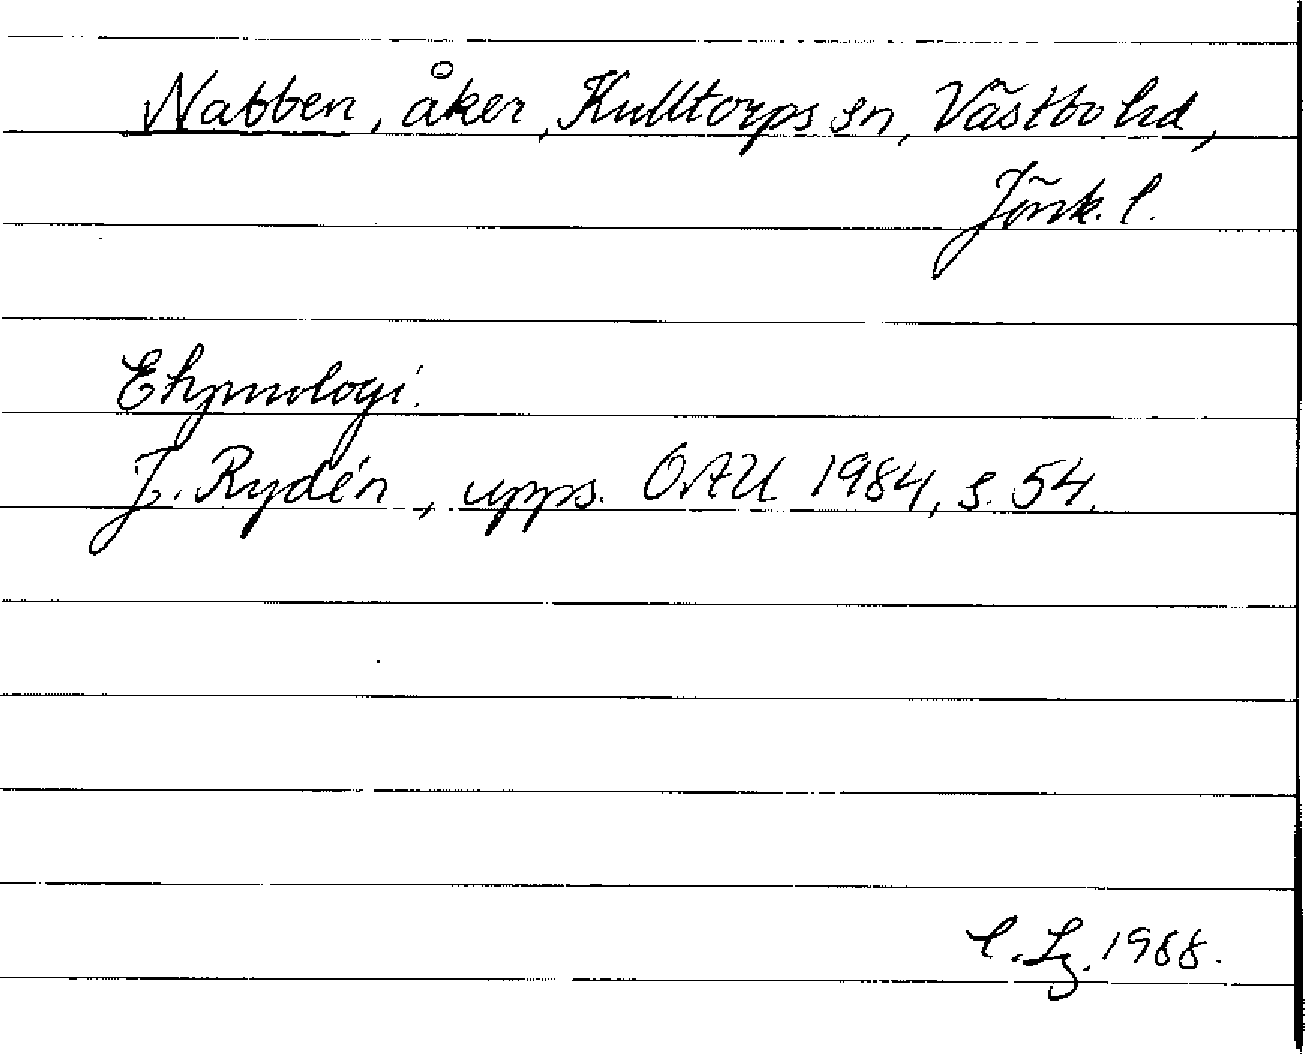 Nabben, åker, Kulltorps sn, Västbo hd,
Jönk. l.
Etymologi.
J. Rydén, upps. OAU 1984, s. 54.
C. Lg. 1988.